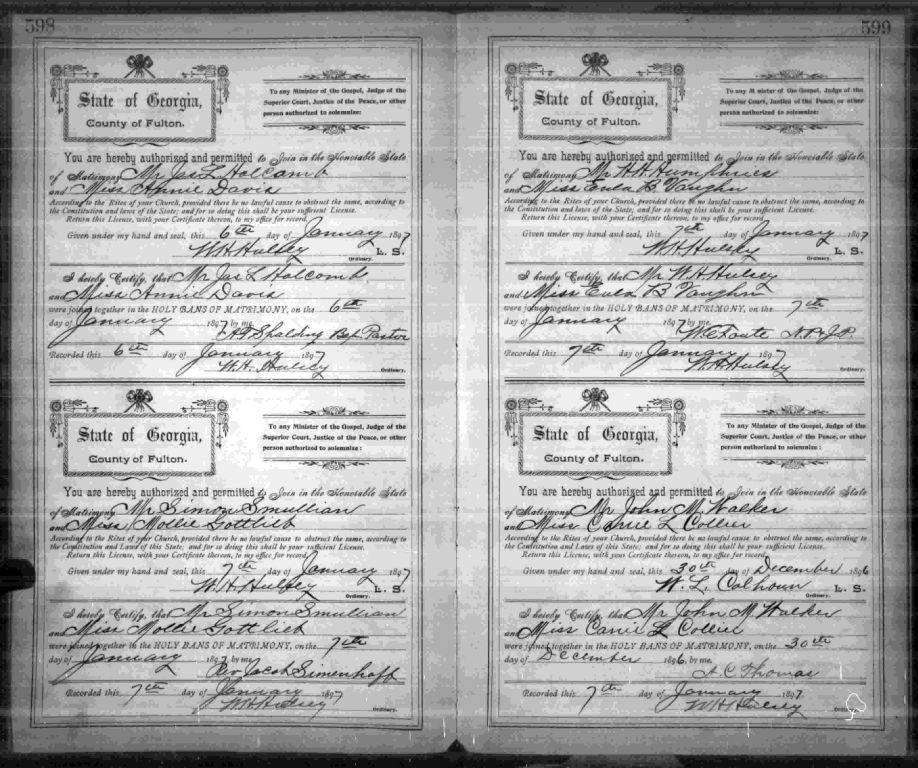 598
State of Georgia,
County of Fulton.
To any Minister of the Gospel, Judge of the
Superior Court, Justice of the Peace, or other
person authorized to solemnize:
You are hereby authorized and permitted to Join in the Honorable State
of Matrimony Mr Jas L Holcomb
and Miss Annie Davis
According to the Rites of your Church, provided there be no lawful cause to obstruct the same, according to
the Constitution and laws of the State; and for so doing this shall be your sufficient License.
Return this License, with your Certificate thereon, to my office for record.
Given under my hand and seal, this 6th day of January 1897
W.H. Hulsey L. S.
Ordinary.
I hereby Certify, that Mr Jas L Holcomb
and Miss Annie Davis
were joined together in the HOLY BANS OF MATRIMONY, on the 6th
day of January 1897 by me,
A T Spalding Bap. Pastor
Recorded this 6th day of January 1897
W.H. Hulsey
Ordinary.
State of Georgia,
County of Fulton.
To any Minister of the Gospel, Judge of the
Superior Court, Justice of the Peace, or other
person authorized to solemnize:
You are hereby authorized and permitted to Join in the Honorable State
of Matrimony Mr Simon Smullian
and Miss Mollie Gottlieb
According to the Rites of your Church, provided there be no lawful cause to obstruct the same, according to
the Constitution and Laws of this State; and for so doing this shall be your sufficient License.
Return this License, with your Certificate thereon, to my office for record.
Given under my hand and seal, this 7th day of January 1897
W.H. Hulsey L. S.
Ordinary.
I hereby Certify, that Mr Simon Smullian
and Miss Mollie Gottlieb
were joined together in the HOLY BANS OF MATRIMONY, on the 7th
day of January 1897 by me
Rev Jacob Simenhoff
Recorded this 7th day of January 1897
W H Hulsey
Ordinary.
599
State of Georgia,
County of Fulton.
To any Minister of the Gospel, Judge of the
Superior Court, Justice of the Peace, or other
person authorized to solemnize:
You are hereby authorized and permitted to Join in the Honorable State
of Matrimony Mr H.H. Humphries
and Miss Eula B Vaughn
According to the Rites of your Church, provided there be no lawful cause to obstruct the same, according to
the Constitution and laws of the State; and for so doing this shall be your sufficient License.
Return this License, with your Certificate thereon, to my office for record.
Given under my hand and seal, this 7th day of January 1897
W.H. Hulsey L. S.
Ordinary.
I hereby Certify, that Mr W.H. Hulsey
and Miss Eula B Vaughn
were joined together in the HOLY BANS OF MATRIMONY, on the 7th
day of January 1897 by me,
W.E. Foute N.P. J.P.
Recorded this 7th day of January 1897
W.H. Hulsey
Ordinary.
State of Georgia,
County of Fulton.
To any Minister of the Gospel, Judge of the
Superior Court, Justice of the Peace, or other
person authorized to solemnize:
You are hereby authorized and permitted to Join in the Honorable State
of Matrimony Mr John M. Walker
and Miss Carrie L Collier
According to the Rites of your Church, provided there be no lawful cause to obstruct the same, according to
the Constitution and Laws of this State; and for so doing this shall be your sufficient License.
Return this License, with your Certificate thereon, to my office for record.
Given under my hand and seal, this 30th day of December 1896
W. L. Calhoun L. S.
Ordinary.
I hereby Certify, that Mr John M Walker
and Miss Carrie L Collier
were joined together in the HOLY BANS OF MATRIMONY, on the 30th
day of December 1896, by me,
A.C. Thomas
Recorded this 7th day of January 1897
W H Hulsey
Ordinary.